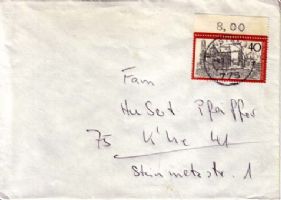 8,00
40
775
Fam
Hubert Pfeiffer
75 41
Steinmetzstr. 1